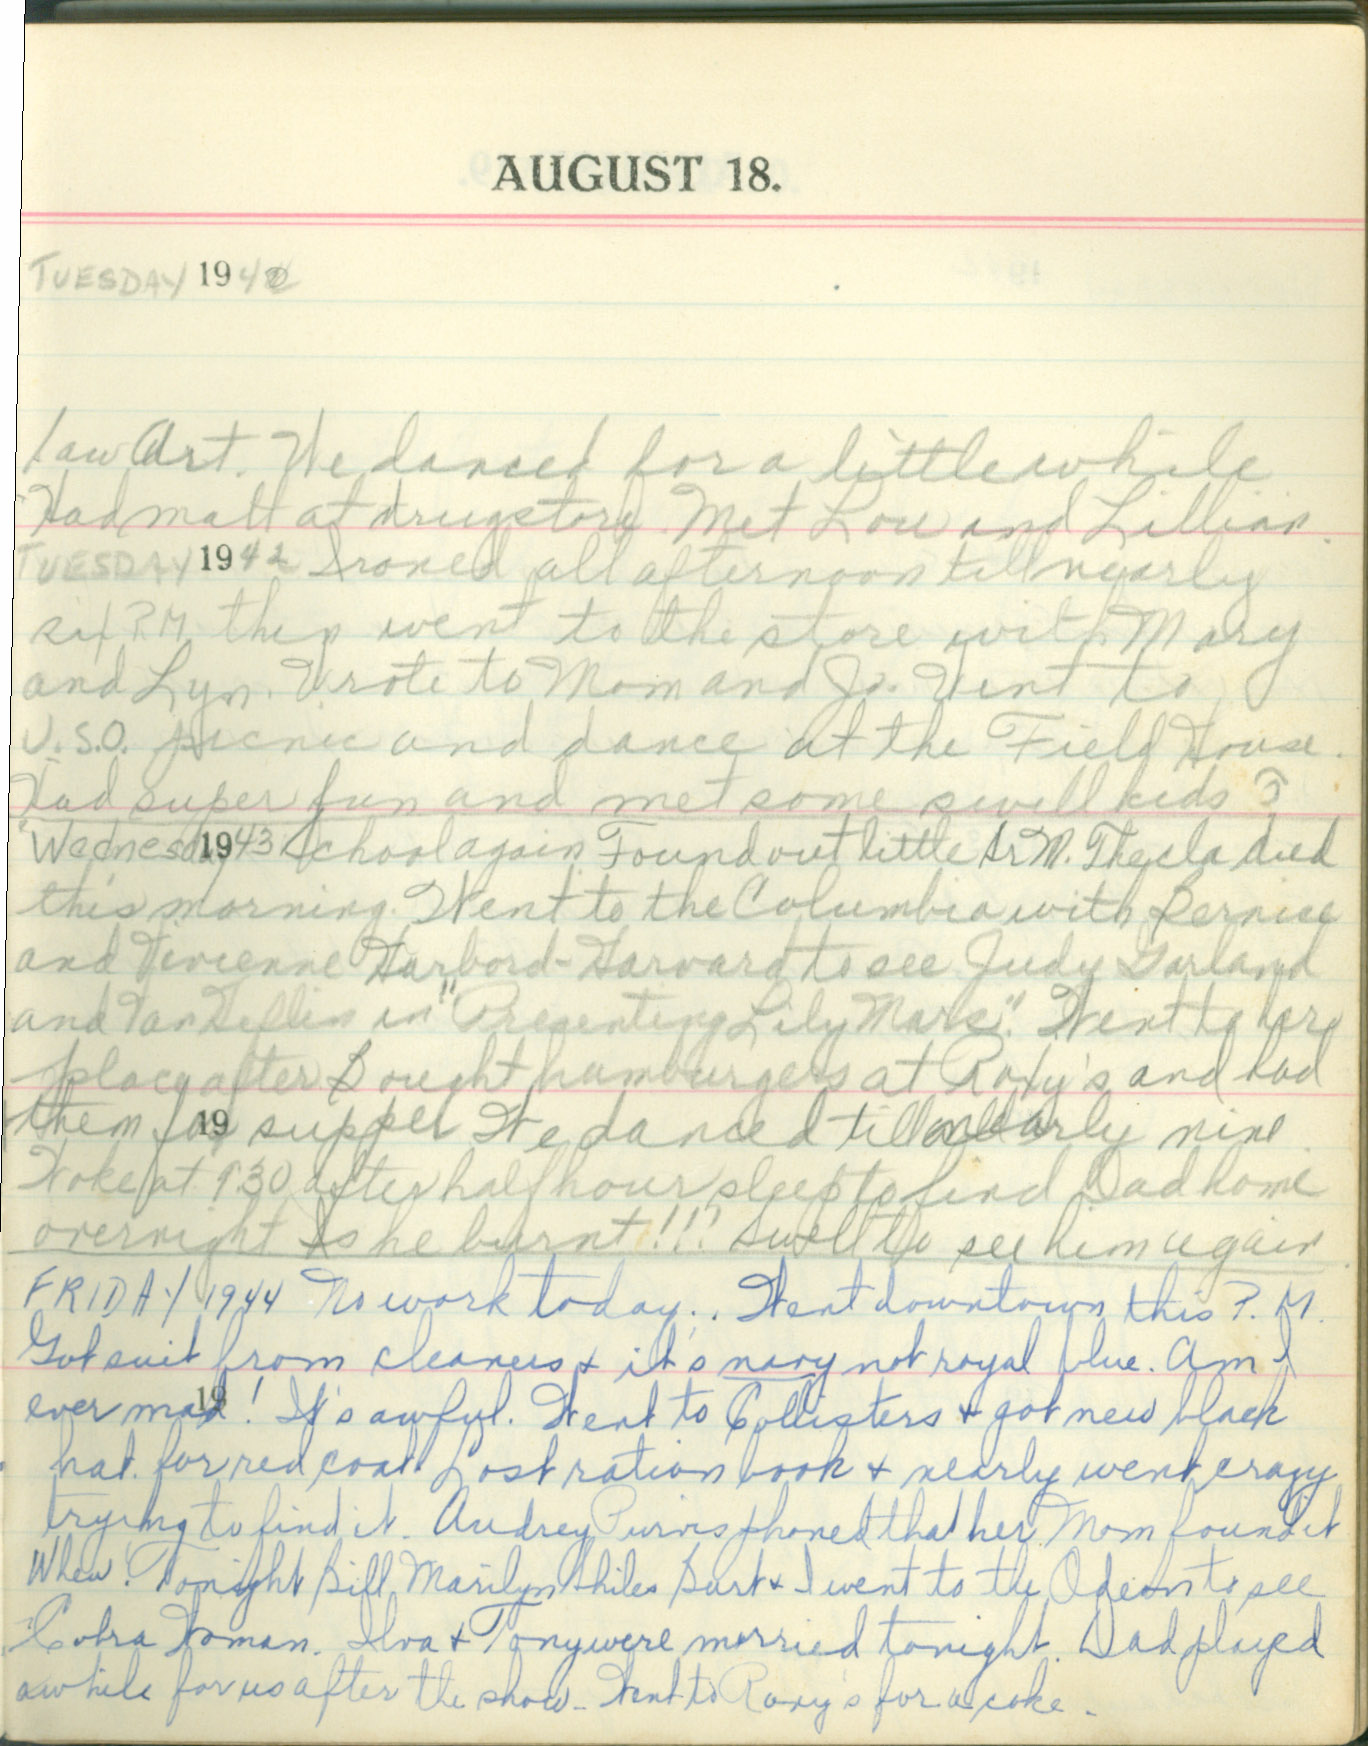 AUGUST 18.
TUESDAY 1942
saw Art. We danced for a little while
Had malt at drugstore. Met Lou and Lillian.
TUESDAY 1942 Ironed all afternoon till nearly
six P.M. then went to the store with Mary
and Lyn. Wrote to Mom and Jo. Went to
U.S.O. picnic and dance at the Field House.
Had super fun and met some swell kids
Wednesday 1943 School again. Found out little Sr M. Thecla died
this morning. Went to the Columbia with Bernice
and Vivienne Harbord-Harvard to see Judy Garland
and Van Heflin in "Presenting Lily Mars". Went to her
place after Bought hamburgers at Roxy's and had
them for 19 supper We danced till nearly nine
Woke at 9:30 after half hour sleep to find Dad home
overnight Is he burnt!!! Swell to see him again
FRIDAY 1944 No work today.. Went downtown this P.M.
Got suit from cleaners & it's navy not royal blue. Am I
ever mad! 19 It's awful. Went to Collisters & got new black
hat for red coat. Lost ration book & nearly went crazy
trying to find it. Audrey Purvis phoned that her Mom found it
Whew! Tonight Bill, Marilyn Burt & I went to the Odeon to see
Cobra Woman. & Tony were married tonight. Dad played
awhile for us after the show - Went to Roxy's for a coke -